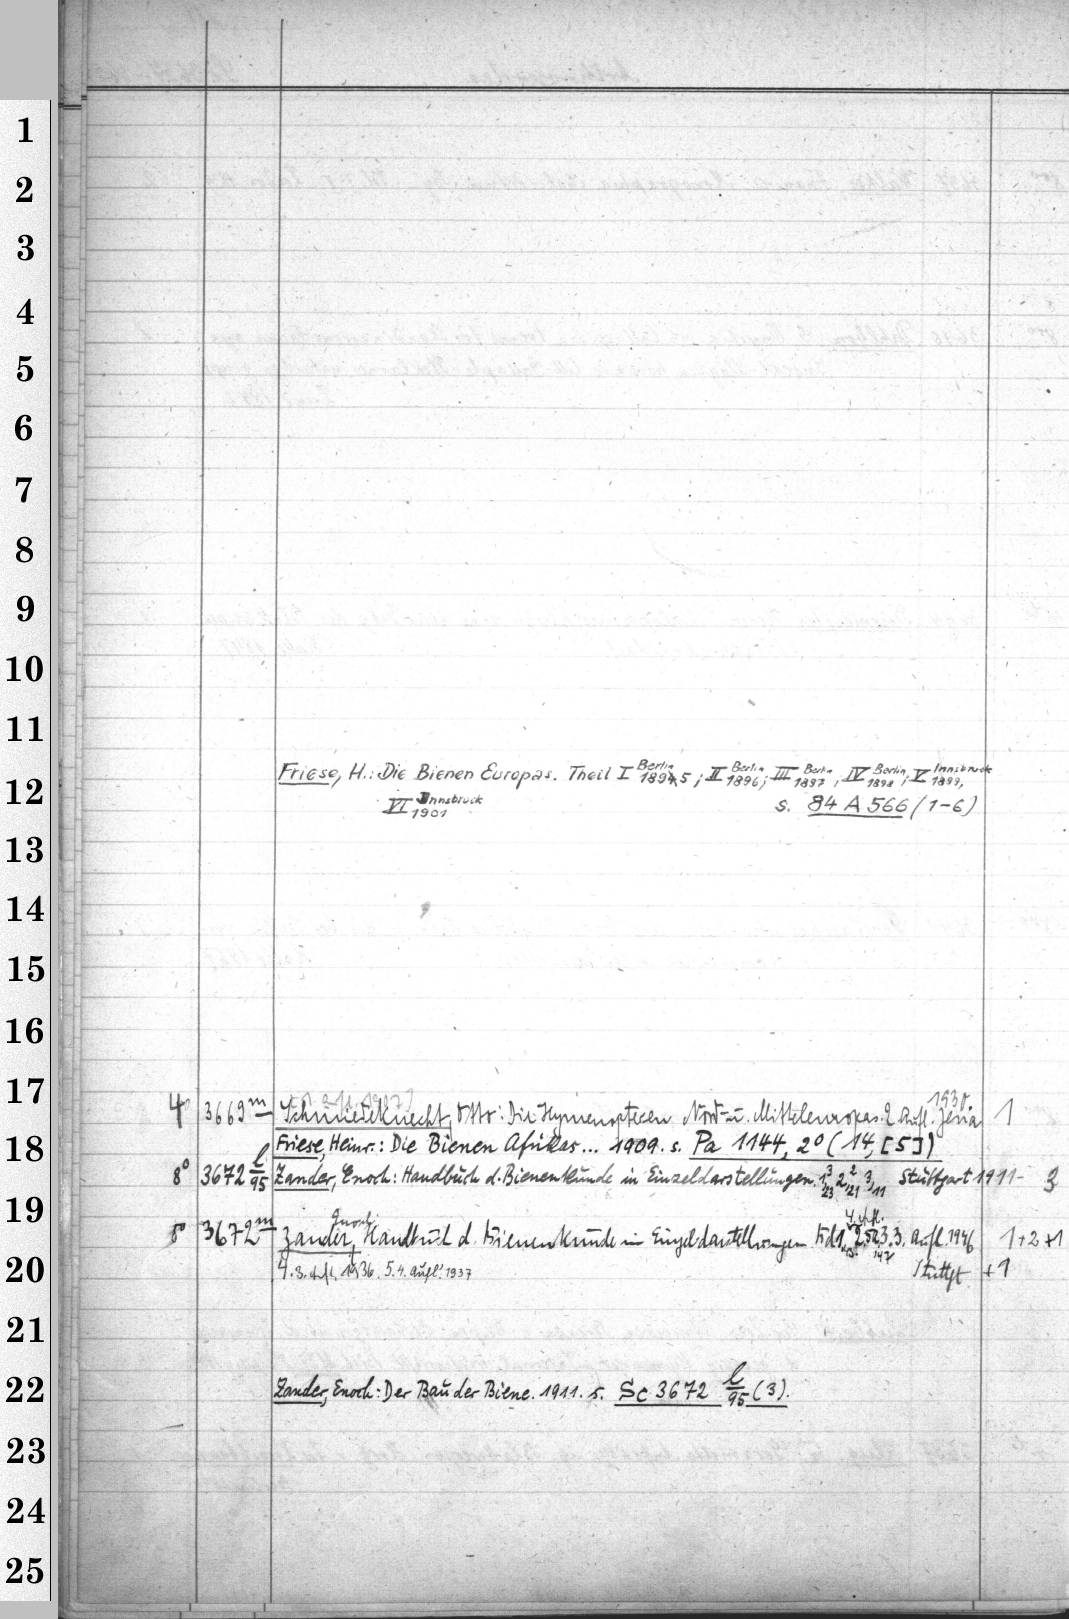 1
2
3
4
5
6
7
8
9
10
11
Friese, H.: Die Bienen Europas. Theil I Berlin 1895; II Berlin 1896; III Berlin 1897, IV Berlin 1898, V Innsbruck 1899,
12
VI Innsbruck 1901 s. 84 A 566 (1-6)
13
14
15
16
17
4° 3669 m Schmiedeknecht, Otto: Die Hymenopteren Nord- u. Mitteleuropas. 2. Aufl. Jena 1930. 1
18
Friese, Heinr.: Die Bienen Afrikas... 1909. s. Pa 1144, 2° (14, [5])
8° 3672 l/95 Zander, Enoch: Handbuch d. Bienenkunde in Einzeldarstellungen. 1³ 23 2² 21 3 11 Stuttgart 1911- 3
19
8° 3672 m Zander, Enoch: Handbuch d. Bienenkunde in Einzeldarstellungen Bd 1, 3. Aufl. 1946 1+2+1
20
4. 3. Aufl. 1936. 5. 4. Aufl. 1937 Stuttgt +1
21
22
Zander, Enoch: Der Bau der Biene. 1911. s. Sc 3672 l/95 (3).
23
24
25